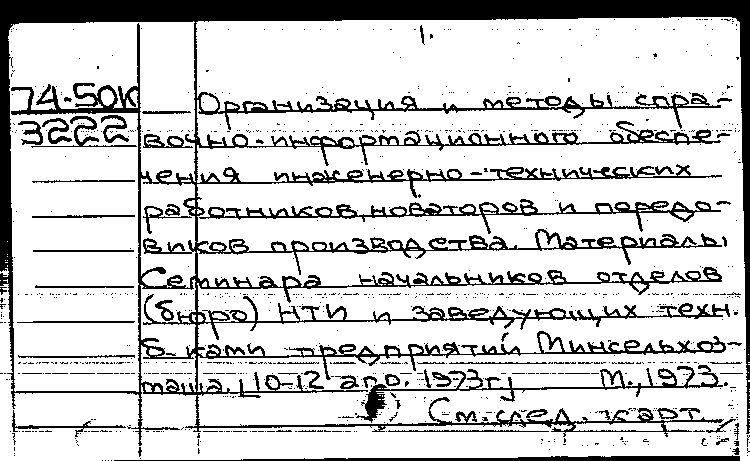 1.
74-50К Организация и методы спра-
3222 вочно-информационного обеспе-
чения инженерно-технических
работников, новаторов и передо-
виков производства. Материалы
Семинара начальников отделов
(бюро) НТИ и заведующих техн.
б-ками предприятий Минсельхоз-
маша. [10-12 апр. 1973г] М., 1973.
См. след. карт.